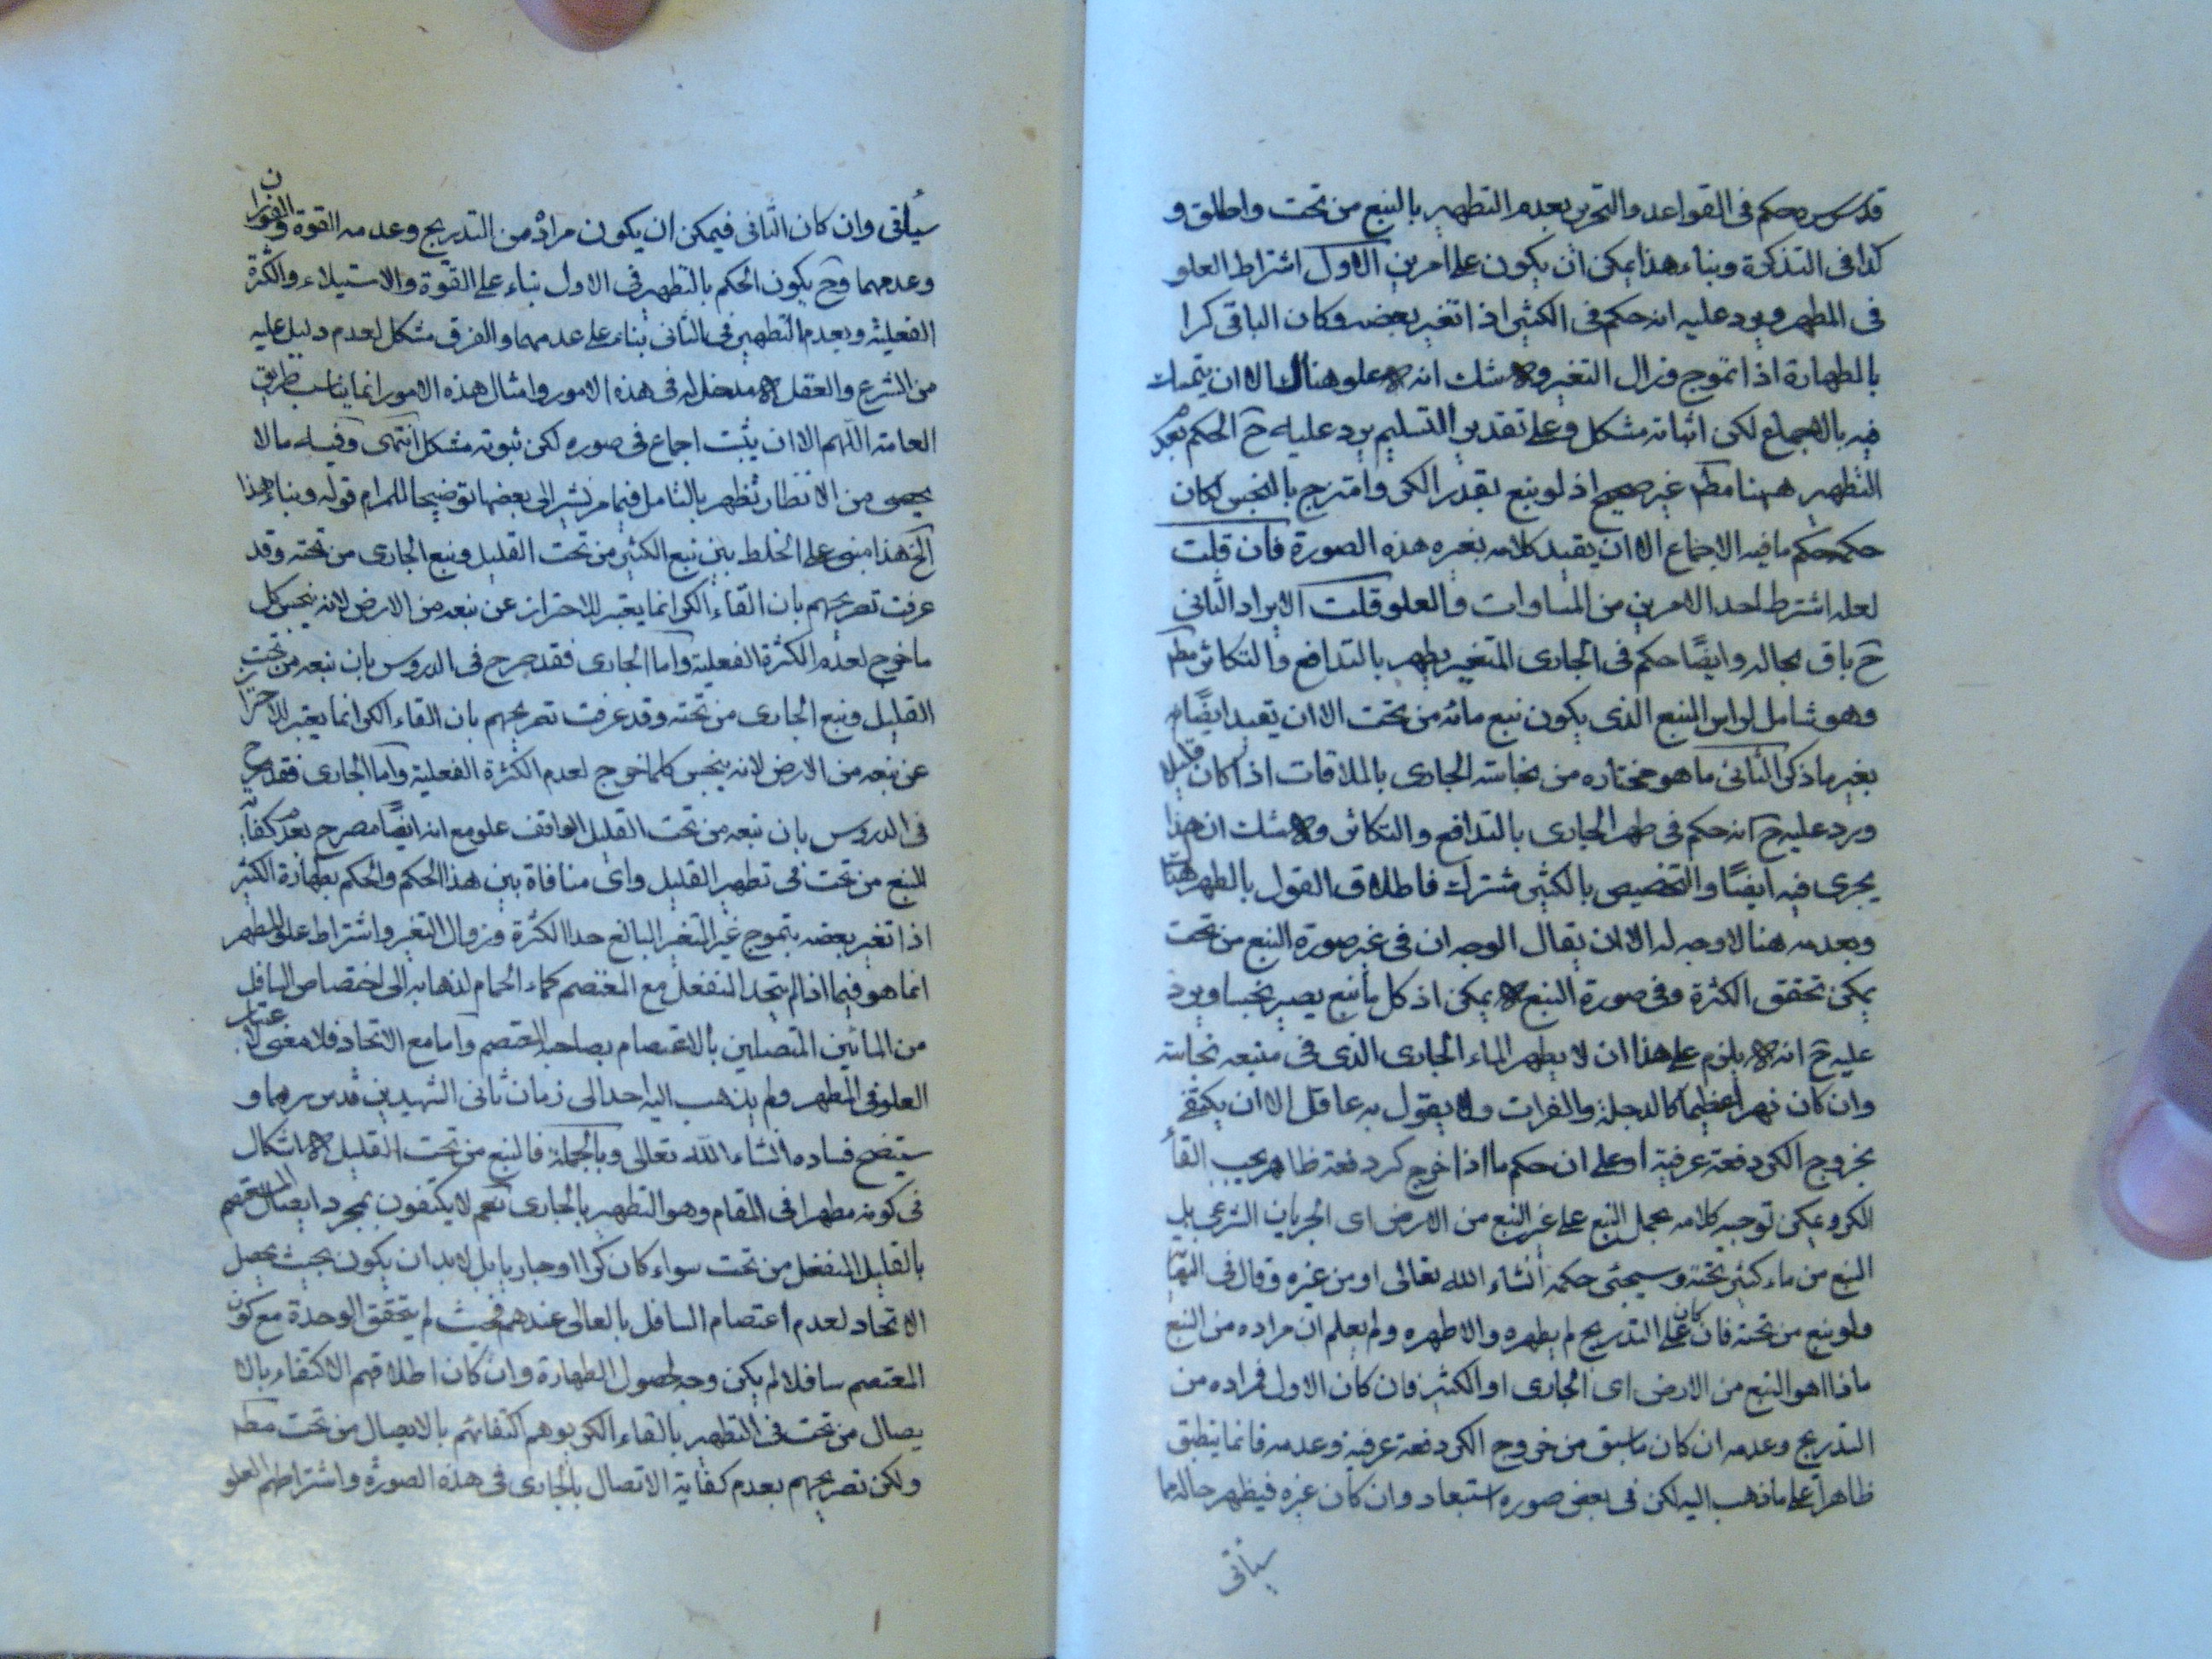 قدس سره حكم فى القواعد والتحرير بعدم التطهير بالنبع من تحت واطلق و
كذا فى التذكرة وبناء هذا يمكن ان يكون على امرين الاول اشتراط العلو
فى المطهر ويرد عليه انه حكم فى الكثير اذا تغير بعضه وكان الباقى كرا
بالطهارة اذا تموج فزال التغير ولا شك انه لا علو هناك الا ان يتمسك
فيه بالاجماع لكن اثباته مشكل وعلى تقدير التسليم يرد عليه ح الحكم بعدم
التطهير ههنا مط غير صحيح اذ لو نبع بقدر الكر وامتزج بالنجس لكان
حكمه حكم ما فيه الاجماع الا ان يقيد كلامه بغير هذه الصورة فان قلت
لعله اشترط احد الامرين من المساوات والعلو قلت الايراد الثانى
ح باق بحاله وايضا حكم فى الجارى المتغير يطهر بالتدافع والتكاثر مط
وهو شامل لراس المنبع الذى يكون نبع مائه من تحت الا ان يقيد ايضا
بغير ما ذكر الثانى ما هو مختاره من نجاسة الجارى بالملاقات اذا كان قليلا
ويرد عليه ح انه حكم فى طهر الجارى بالتدافع والتكاثر ولا شك ان هذا
يجرى فيه ايضا والتخصيص بالكثير مشترك فاطلاق القول بالطهر هنا
وبعدمه هنا لا وجه له الا ان يقال الوجه ان فى غير صورة النبع من تحت
يمكن تحقق الكثرة وفى صورة النبع لا يمكن اذ كل ما نبع يصير نجسا ويرد
عليه ح انه لا يلزم على هذا ان لا يطهر الماء الجارى الذى فى منبعه نجاسة
وان كان نهرا عظيما كالدجلة والفرات ولا يقول به عاقل الا ان يكتفى
بخروج الكر دفعة عرفية او على ان حكم ما اذا خرج كر دفعة ظاهر يجب القأ
الكر ويمكن توجيه كلامه بحمل النبع على غير النبع من الارض اى الجريان الشرعى بل
النبع من ماء كثير تحته وسيجئ حكمه انشاء الله تعالى او من غيره وقال فى النهاية
ولو نبع من تحته فان كان على التدريج لم يطهره والا طهره ولم يعلم ان مراده من النبع
ماذا اهو النبع من الارض اى الجارى او الكثير فان كان الاول فمراده من
التدريج وعدمه ان كان ما سبق من خروج الكر دفعة عرفية وعدمه فانما ينطبق
ظاهرا على ما ذهب اليه لكن فى بعض صوره استبعاد وان كان غيره فيظهر حاله مما
سيأتى
سيأتى وان كان الثانى فيمكن ان يكون مراده من التدريج وعدمه القوة والفوران
وعدمهما وح يكون الحكم بالتطهير فى الاول بناء على القوة والاستيلاء والكثرة
الفعلية وبعدم التطهير فى الثانى بناء على عدمهما والفرق مشكل لعدم دليل عليه
من الشرع والعقل لا مدخل له فى هذه الامور وامثال هذه الامور انما يناسب طريق
العامة اللهم الا ان يثبت اجماع فى صورة لكن ثبوته مشكل انتهى وفيه ما لا
يحصى من الانظار تظهر بالتامل فيما مر نشير الى بعضها توضيحا للمرام قوله وبناء هذا
الخ هذا مبنى على الخلط بين نبع الكثير من تحت القليل ونبع الجارى من تحته وقد
عرفت تصريحهم بان القاء الكر انما يعتبر للاحتراز عن نبعه من الارض لانه ينجس كل
ما خرج لعدم الكثرة الفعلية واما الجارى فقد صرح فى الدروس بان نبعه من تحت
القليل ونبع الجارى من تحته وقد عرفت تصريحهم بان القاء الكر انما يعتبر للاحتراز
عن نبعه من الارض لانه ينجس كلما خرج لعدم الكثرة الفعلية واما الجارى فقد صرح
فى الدروس بان نبعه من تحت القليل الواقف علو مع انه ايضا مصرح بعدم كفاية
النبع من تحت فى تطهير القليل واى منافاة بين هذا الحكم والحكم بطهارة الكثير
اذا تغير بعضه بتموج غير المتغير البالغ حد الكثرة وزوال التغير واشتراط علو المطهر
انما هو فيما اذا لم يتحد المنفعل مع المعتصم كماء الحمام لذهابه الى اختصاص السافل
من المائين المتصلين بالاعتصام بصاحبه المعتصم واما مع الاتحاد فلا معنى لاعتبار
العلو فى المطهر ولم يذهب اليه احد الى زمان ثانى الشهيدين قدس سرهما و
سيتضح فساده انشاء الله تعالى وبالجملة فالنبع من تحت القليل لا اشكال
فى كونه مطهرا فى المقام وهو التطهير بالجارى نعم لا يكتفون بمجرد ايصال المعتصم
بالقليل المنفعل من تحت سواء كان كرا او جاريا بل لابد ان يكون بحيث يحصل
الاتحاد لعدم اعتصام السافل بالعالى عندهم فحيث لم يتحقق الوحدة مع كون
المعتصم سافلا لم يكن وجه لحصول الطهارة وان كان اطلاقهم الاكتفاء بالا
يصال من تحت فى التطهير بالقاء الكر يوهم اكتفائهم بالايصال من تحت مط
ولكن تصريحهم بعدم كفاية الاتصال بالجارى فى هذه الصورة واشتراطهم العلو